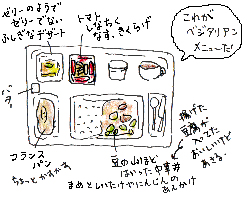 ゼリーのようで
ゼリーでない
ふしぎなデザート
トマト
しなちく
なす、きくらげ
これが
ベジタリアン
メニューだ!
バター
フランス
パン
ちょっとかため
豆の山ほど
はいった中華丼
まめといたけやにんじんのあんかけ
揚げた
豆腐が
入ってた
おいしいけど
あきる。